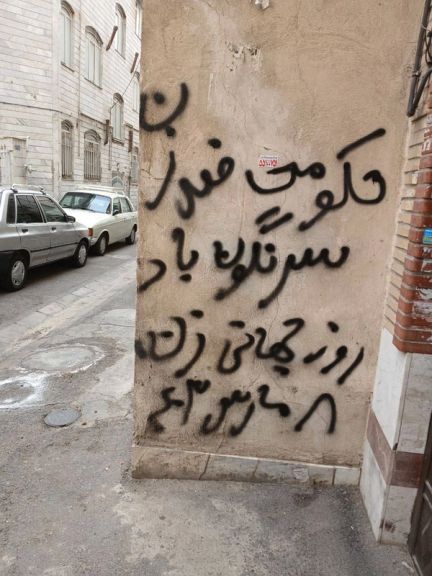 حکومت ضد زن
سرنگون باد
روز جهانی زن
۸ مارس ۴۰۳